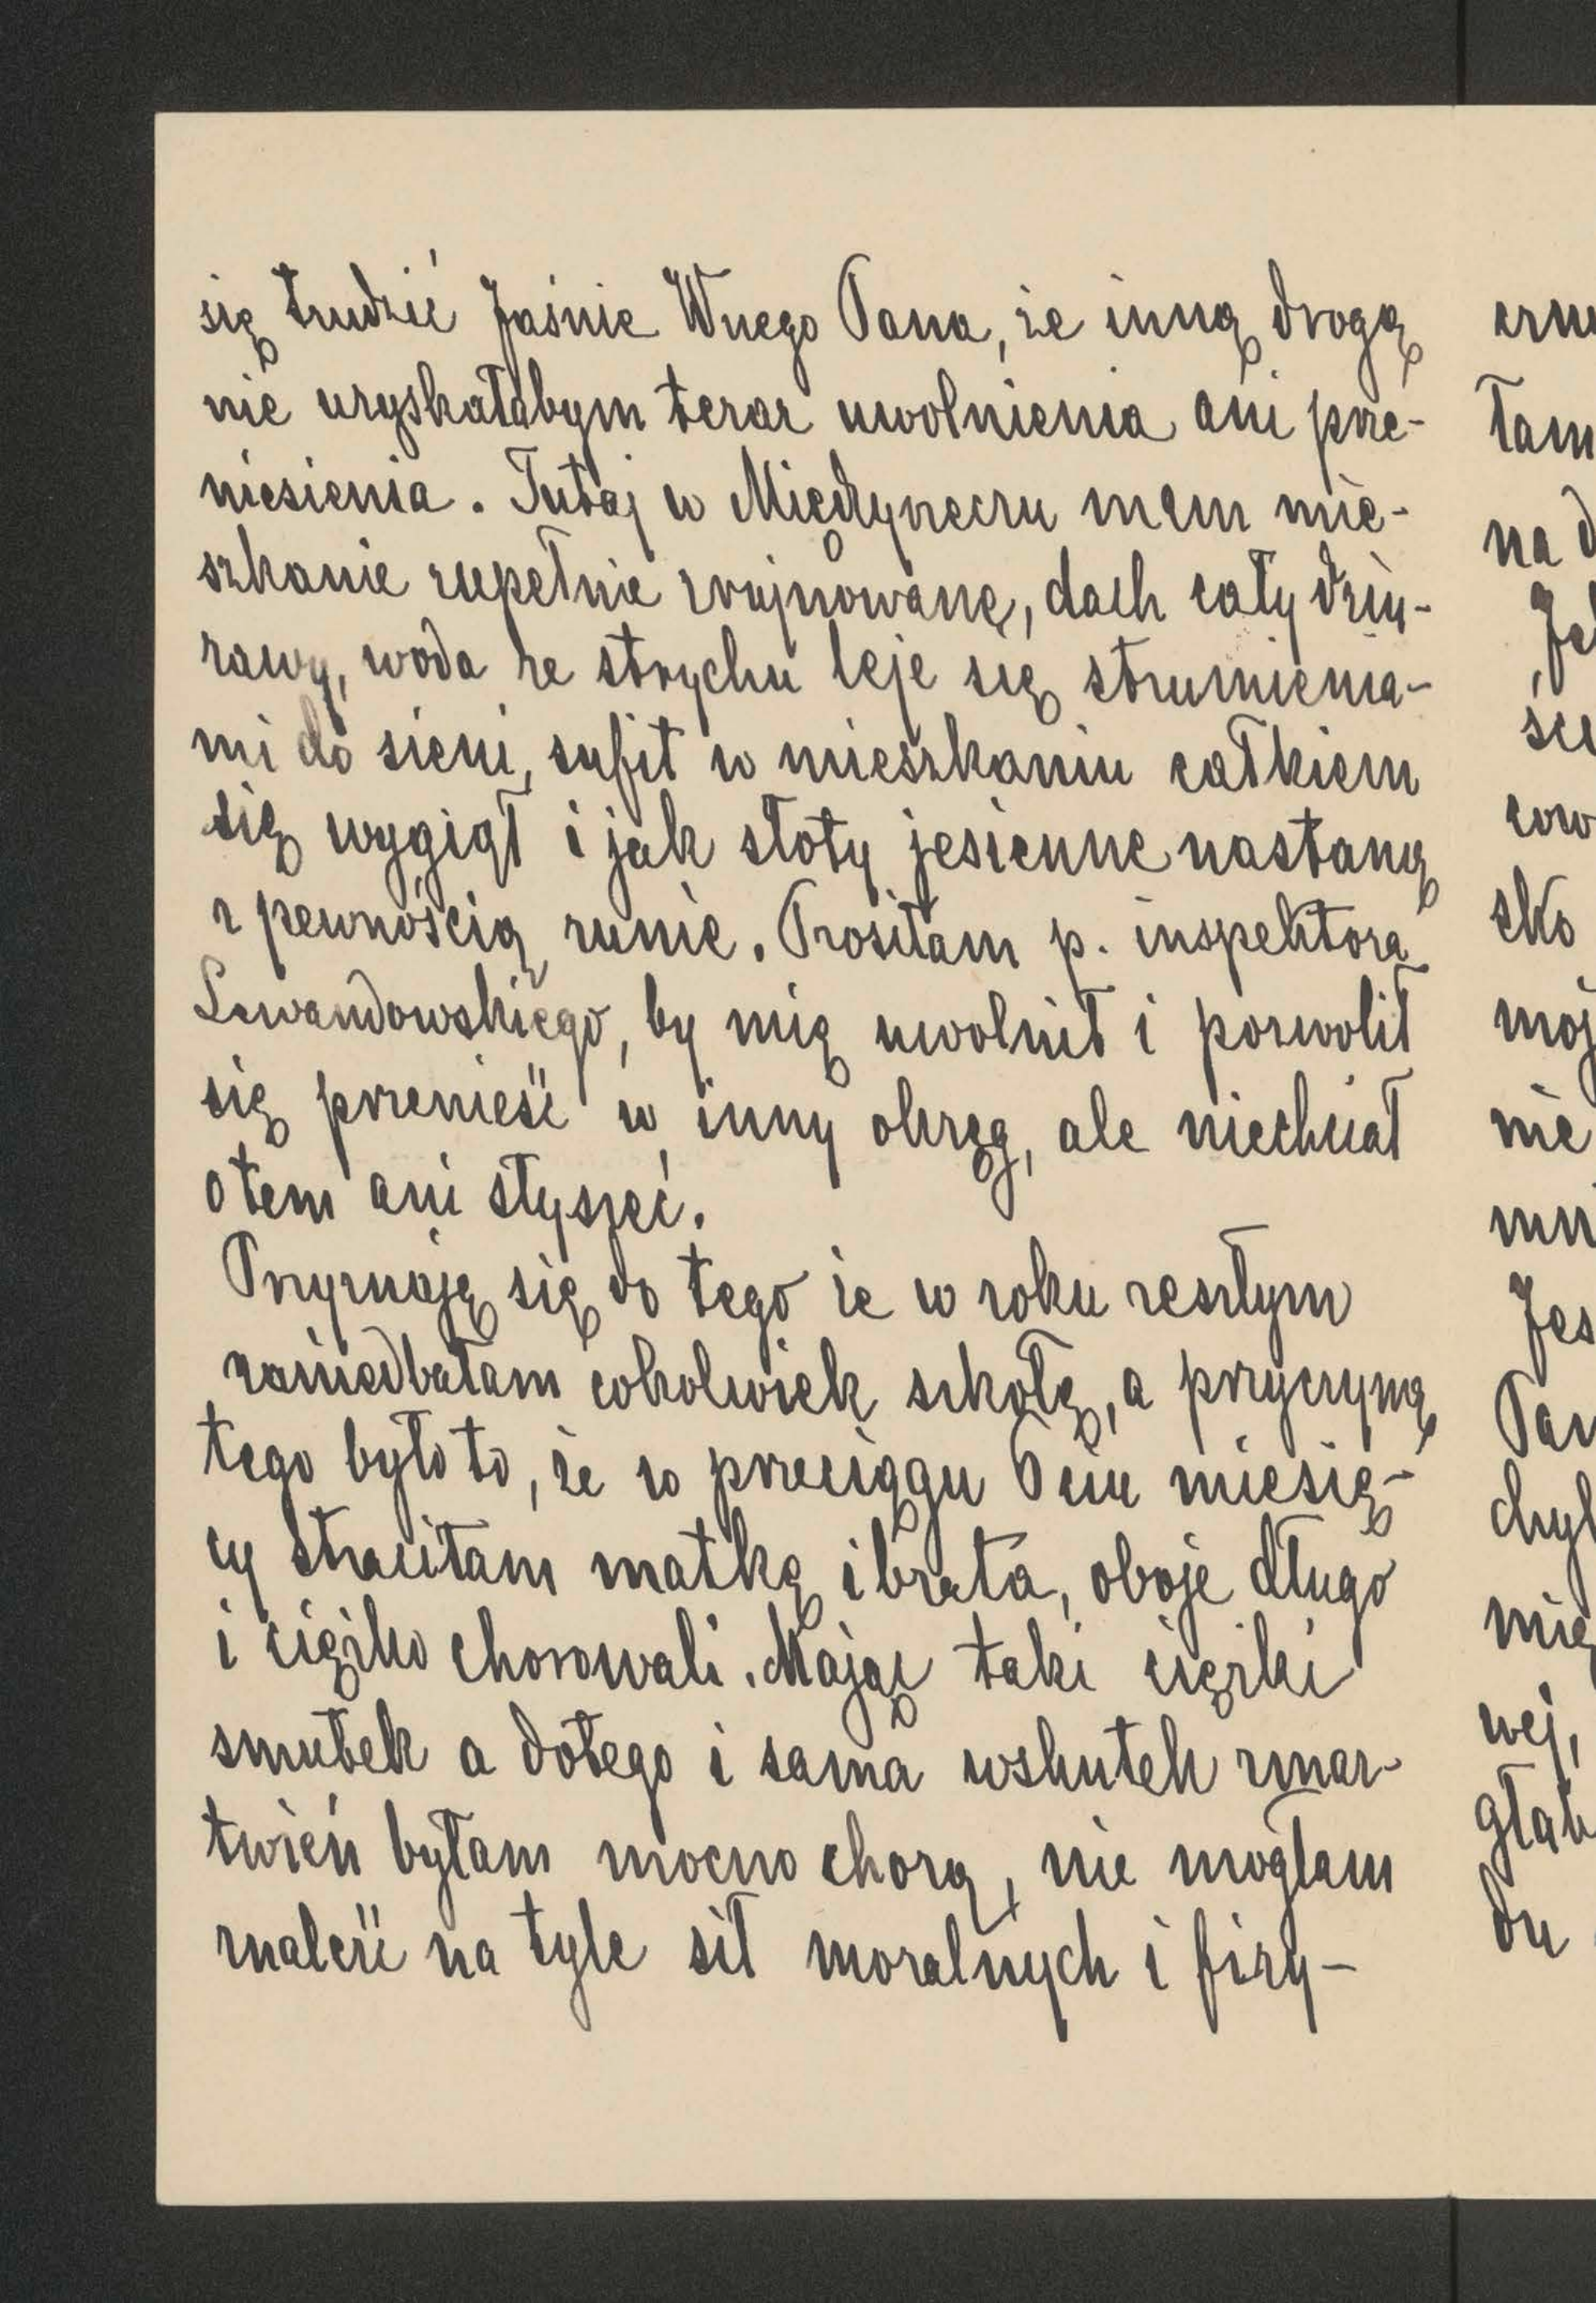 się trudzić Jaśnie Wnego Pana, że inną drogą
nie uzyskałabym teraz uwolnienia ani prze-
niesienia. Tutaj w Międzyrzeczu mam mie-
szkanie zupełnie zrujnowane, dach cały dziu-
rawy, woda ze strychu leje się strumienia-
mi do sieni, sufit w mieszkaniu całkiem
się wygiął i jak słoty jesienne nastaną
z pewnością runie. Prosiłam p. inspektora
Lewandowskiego, by mię uwolnił i pozwolił
się przenieść w inny okręg, ale niechciał
o tem ani słyszeć.
Przyznaję się do tego że w roku zeszłym
zaniedbałam cokolwiek szkołę, a przyczyną
tego było to, że w przeciągu 6ciu miesię-
cy straciłam matkę i brata, oboje długo
i ciężko chorowali. Mając taki ciężki
smutek a dotego i sama wskutek zmar-
twień byłam mocno chorą, nie mogłam
znaleść na tyle sił moralnych i fizy-
tam
na d
Je
ście
sko
moj
nie
Jes
Pan
chyl
mię
wej,
głab
du